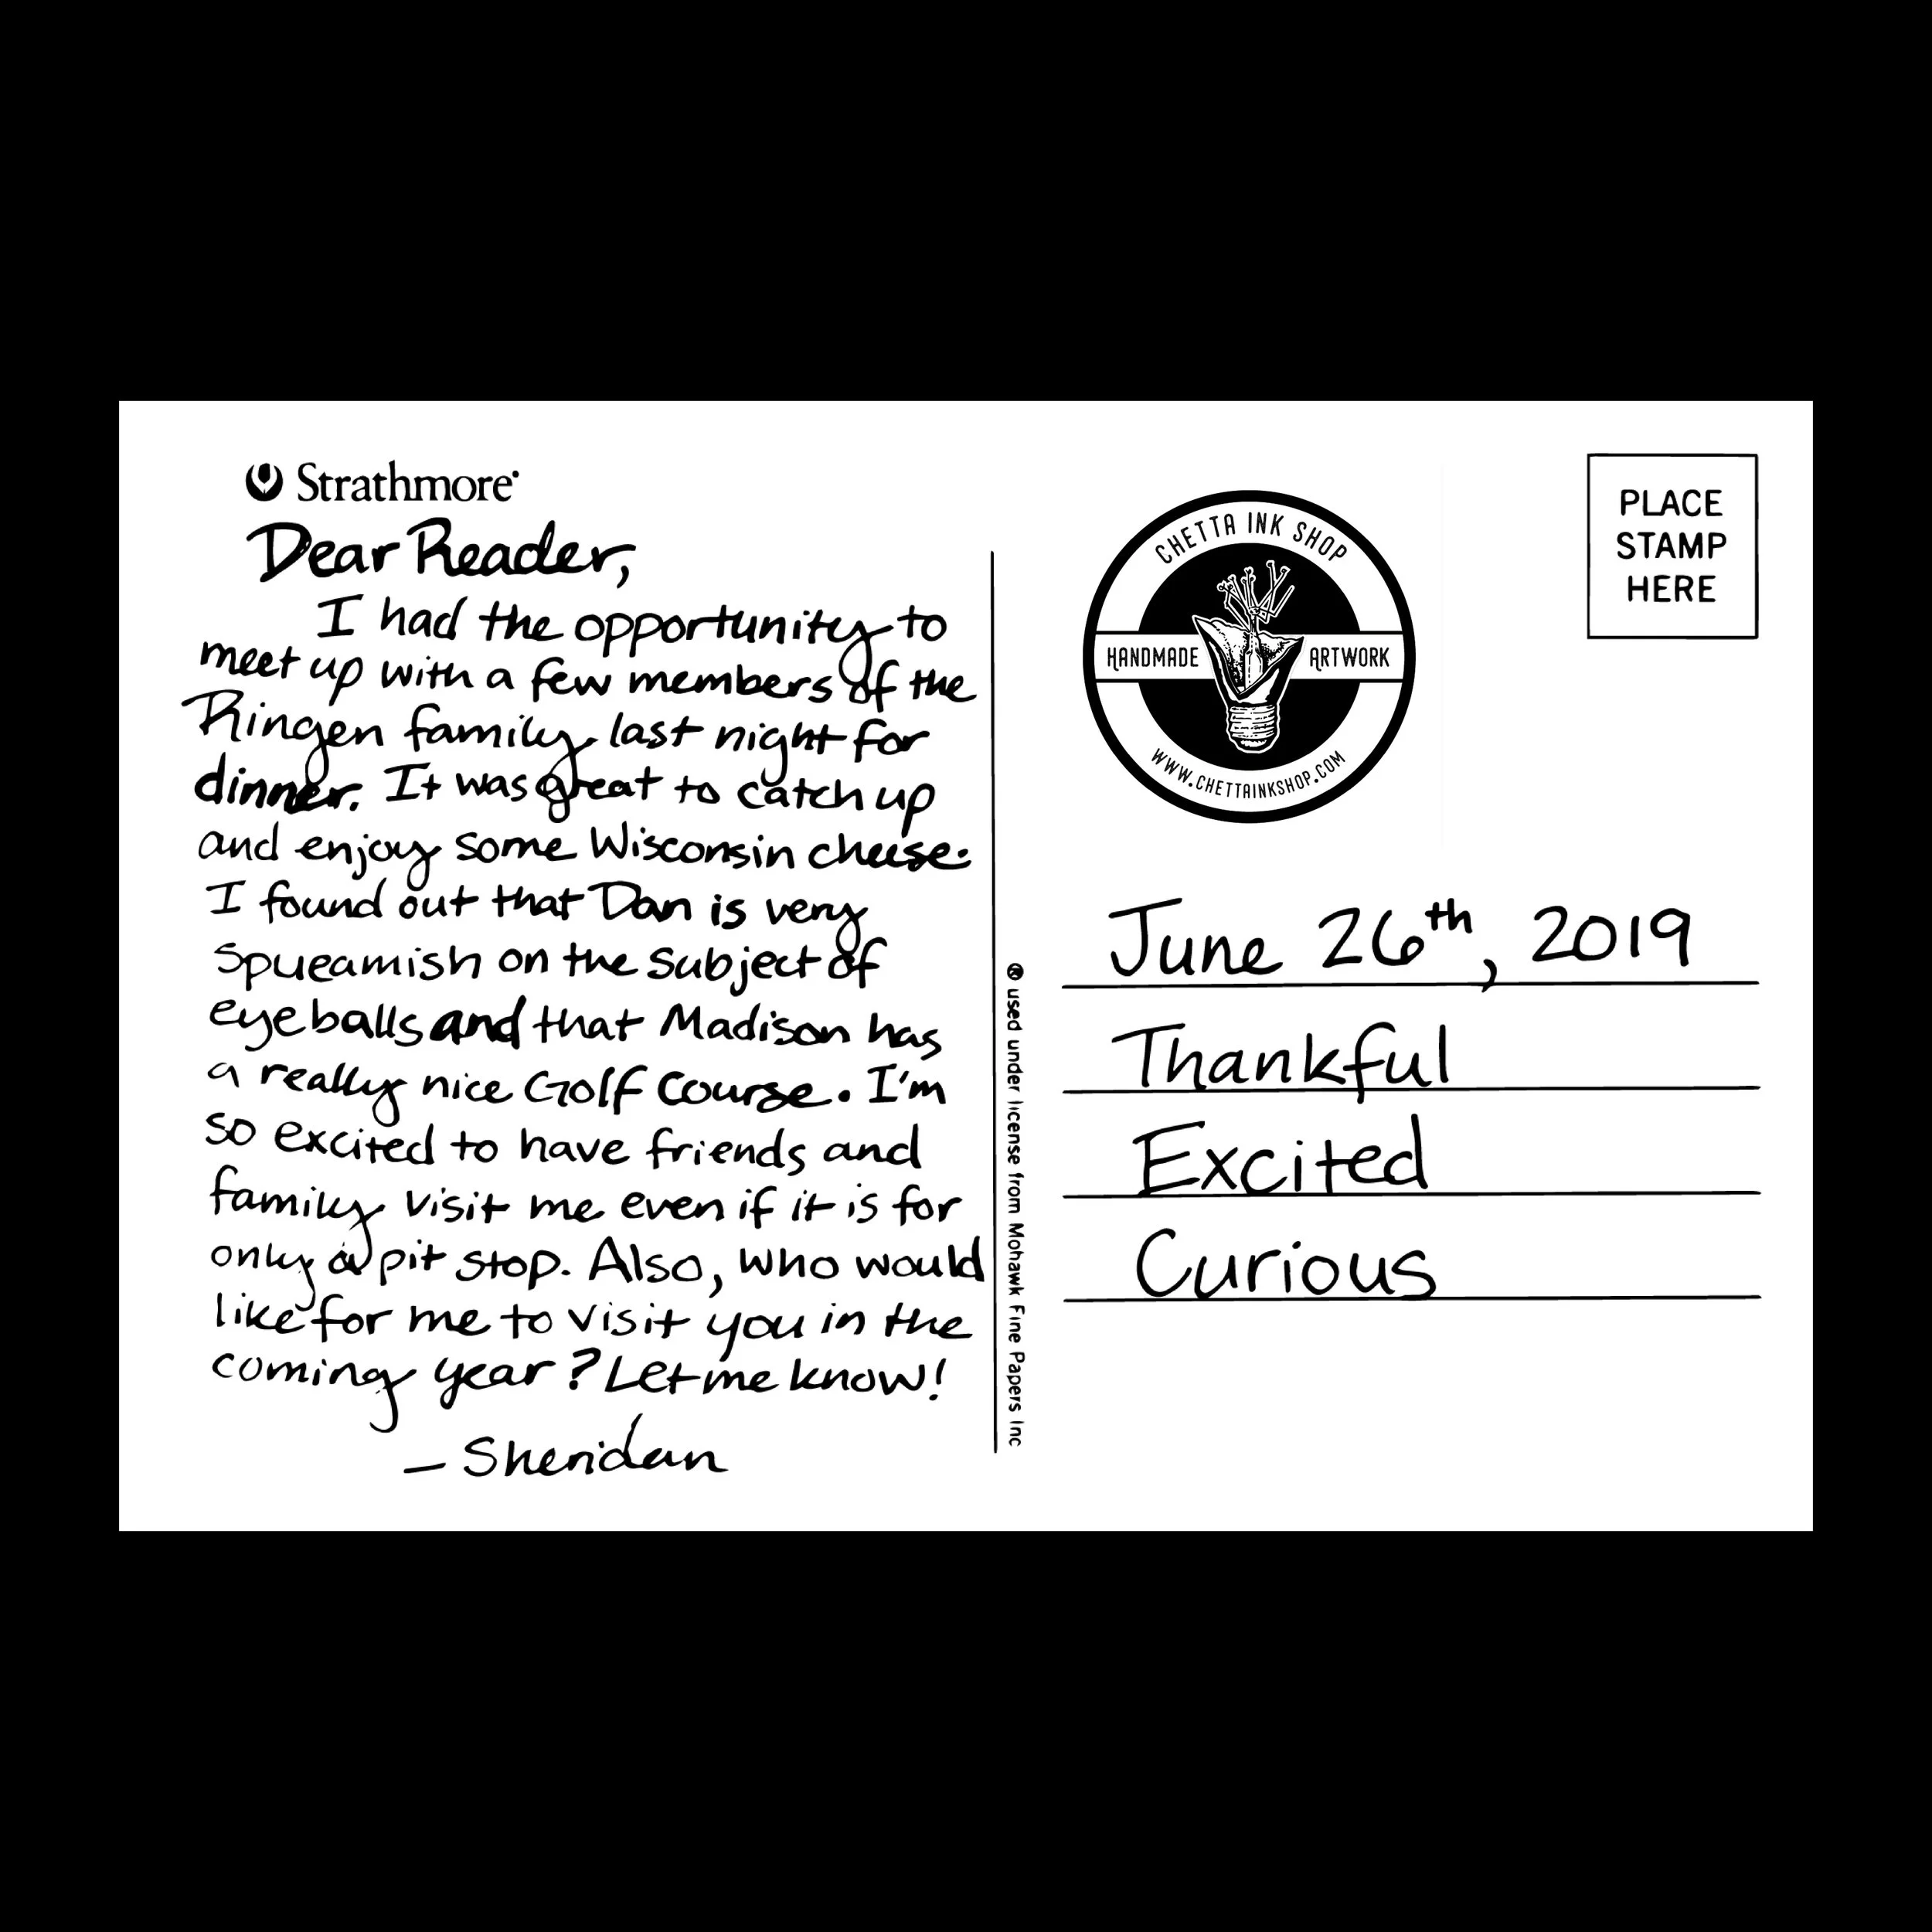 Strathmore
Dear Reader,
I had the opportunity to
meet up with a few members of the
Ringen family last night for
dinner. It was great to catch up
and enjoy some Wisconsin cheese.
I found out that Dan is very
Spueamish on the subject of
eyeballs and that Madison has
a really nice Golf Course. I'm
so excited to have friends and
family visit me even if it is for
only a pit stop. Also, who would
like for me to visit you in the
coming year? Let me know!
- Sheridan
® used under license from Mohawk Fine Papers Inc
CHETTA INK SHOP
HANDMADE ARTWORK
WWW.CHETTAINKSHOP.COM
PLACE
STAMP
HERE
June 26th, 2019
Thankful
Excited
Curious